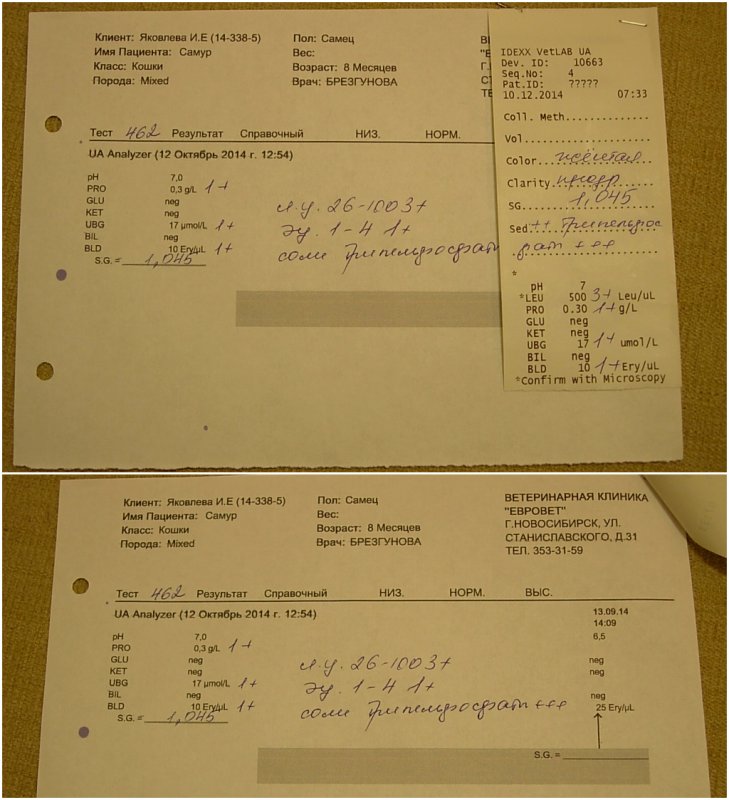 Клиент: Яковлева И.Е (14-338-5)
Имя Пациента: Самур
Класс: Кошки
Порода: Mixed
Пол: Самец
Вес:
Возраст: 8 Месяцев
Врач: БРЕЗГУНОВА
ВЕ
"Е
Г.
СТ
ТЕ
Тест 462 Результат Справочный НИЗ. НОРМ.
UA Analyzer (12 Октябрь 2014 г. 12:54)
pH 7,0
PRO 0,3 g/L 1+
GLU neg
KET neg
UBG 17 µmol/L 1+
BIL neg
BLD 10 Ery/µL 1+
S.G. = 1,045
л.у. 26-100 3+
эу. 1-4 1+
соли трипельфосфат
IDEXX VetLAB UA
Dev. ID: 10663
Seq.No: 4
Pat.ID: ?????
10.12.2014 07:33
Coll. Meth..............
Vol.....................
Color...жёлтая
Clarity
SG 1,045
Sed ++ Трипельфос
фат +++
*
pH 7
*LEU 500 3+ Leu/uL
PRO 0.30 1+ g/L
GLU neg
KET neg
UBG 17 1+ umol/L
BIL neg
BLD 10 1+ Ery/uL
*Confirm with Microscopy
Клиент: Яковлева И.Е (14-338-5)
Имя Пациента: Самур
Класс: Кошки
Порода: Mixed
Пол: Самец
Вес:
Возраст: 8 Месяцев
Врач: БРЕЗГУНОВА
ВЕТЕРИНАРНАЯ КЛИНИКА
"ЕВРОВЕТ"
Г.НОВОСИБИРСК, УЛ.
СТАНИСЛАВСКОГО, Д.31
ТЕЛ. 353-31-59
Тест 462 Результат Справочный НИЗ. НОРМ. ВЫС.
UA Analyzer (12 Октябрь 2014 г. 12:54) 13.09.14
14:09
pH 7,0 6,5
PRO 0,3 g/L 1+
GLU neg neg
KET neg neg
UBG 17 µmol/L 1+
BIL neg neg
BLD 10 Ery/µL 1+ 25 Ery/µL
S.G. = 1,045
л.у. 26-100 3+
эу. 1-4 1+
соли Трипельфосфат +++
S.G. =